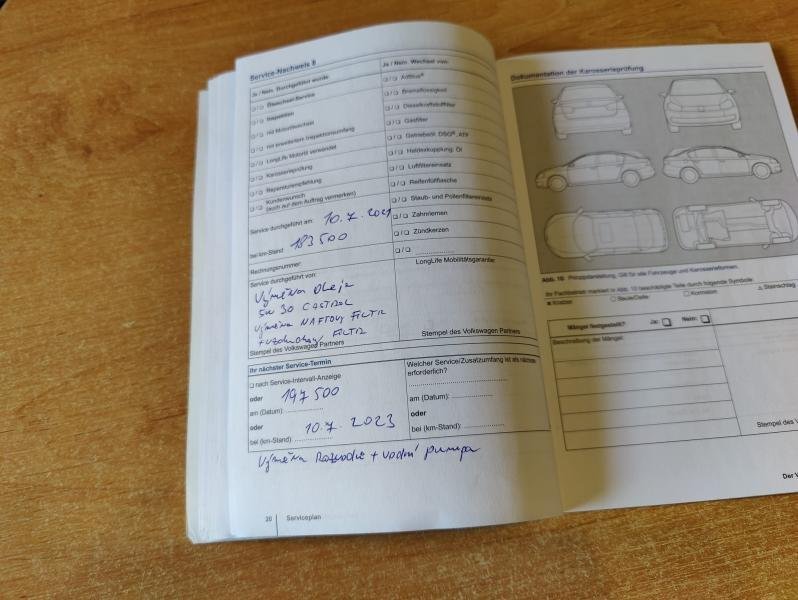 Service-Nachweis 8
Ja / Nein: Durchgeführt wurde:
❑ / ❑ Ölwechsel-Service
❑ / ❑ Inspektion
❑ / ❑ mit Motorölwechsel
❑ / ❑ mit erweitertem Inspektionsumfang
❑ / ❑ LongLife Motoröl verwendet
❑ / ❑ Karosserieprüfung
❑ / ❑ Reparaturempfehlung
❑ / ❑ Kundenwunsch
(auch auf dem Auftrag vermerken)
Service durchgeführt am: 10.7.2021
bei km-Stand: 183500
Rechnungsnummer:
Service durchgeführt von:
Výměna oleje
5W30 CASTROL
výměna NAFTOVÝ FILTR
+ vzduchový FILTR
Stempel des Volkswagen Partners
Ja / Nein: Wechsel von:
❑ / ❑ AdBlue®
❑ / ❑ Bremsflüssigkeit
❑ / ❑ Dieselkraftstofffilter
❑ / ❑ Gasfilter
❑ / ❑ Getriebeöl: DSG®, ATF
❑ / ❑ Haldexkupplung: Öl
❑ / ❑ Luftfiltereinsatz
❑ / ❑ Reifenfüllflasche
❑ / ❑ Staub- und Pollenfiltereinsatz
❑ / ❑ Zahnriemen
❑ / ❑ Zündkerzen
❑ / ❑ ..............
LongLife Mobilitätsgarantie:
Stempel des Volkswagen Partners
Ihr nächster Service-Termin
❑ nach Service-Intervall-Anzeige
oder 197 500
am (Datum): ..............
oder 10.7.2023
bei (km-Stand): ..............
Welcher Service/Zusatzumfang ist als nächstes
erforderlich?
am (Datum): ..............
oder
bei (km-Stand): ..............
Výměna Rozvodů + vodní pumpa
20 Serviceplan
Dokumentation der Karosserieprüfung
Abb. 10 Prinzipdarstellung. Gilt für alle Fahrzeuge und Karosserieformen.
Ihr Fachbetrieb markiert in Abb. 10 beschädigte Teile durch folgende Symbole:
× Kratzer ○ Beule/Delle □ Korrosion △ Steinschlag
Mängel festgestellt? Ja: ❑ Nein: ❑
Beschreibung der Mängel:
Stempel des V
Der V